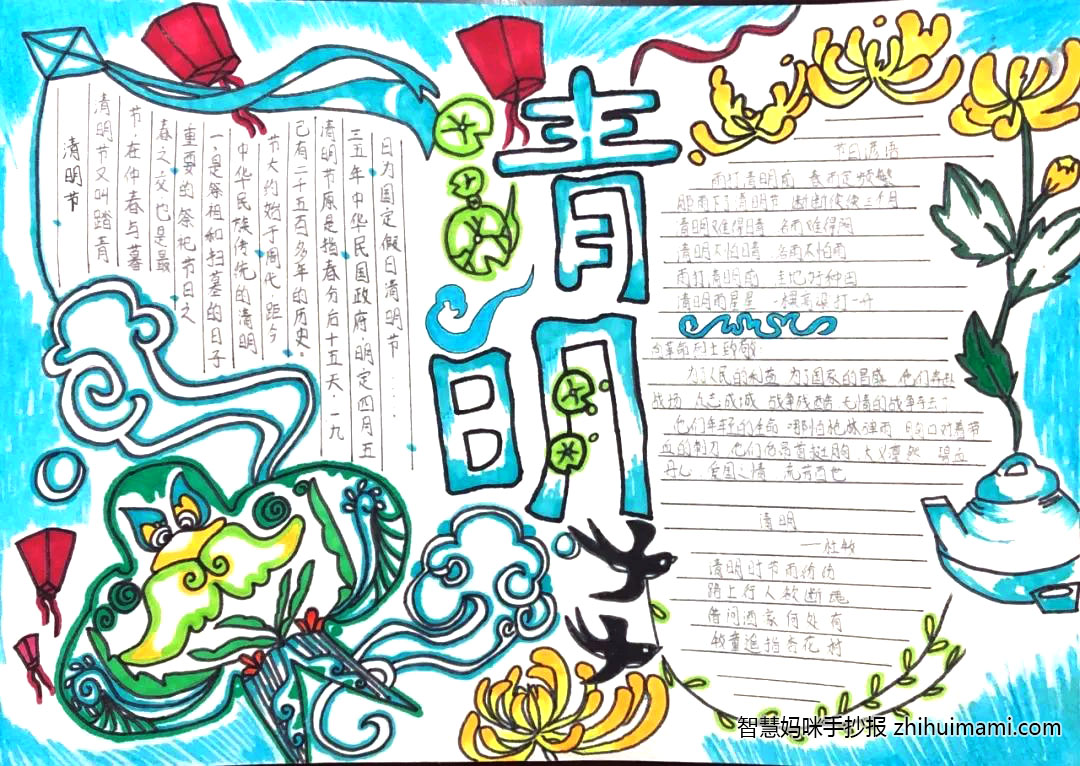 清明
清明节
清明节又叫踏青
节,在仲春与暮
春之交,也是最
重要的祭祀节日之
一,是祭祖和扫墓的日子
中华民族传统的清明
节大约始于周代,距今
已有二千五百多年的历史。
清明节原是指春分后十五天,一九
三五年中华民国政府,明定四月五
日为国定假日清明节.....
节日谚语
雨打清明前 春雨定频繁
阴雨下了清明节 断断续续三个月
清明难得晴 谷雨难得阴
清明不怕晴 谷雨不怕雨
雨打清明前 洼地好种田
清明雨星星 一棵高粱打一斗
向革命烈士致敬
为了人民的利益 为了国家的昌盛 他们奔赴
战场 众志成城 战争残酷 无情的战争夺去了
他们年轻的生命 哪怕枪林弹雨 胸口对着带
血的刺刀 他们也昂首挺胸 大义凛然 碧血
丹心 爱国之情 流芳百世
清明
——杜牧
清明时节雨纷纷
路上行人欲断魂
借问酒家何处有
牧童遥指杏花村
智慧妈咪手抄报 zhihuimami.com